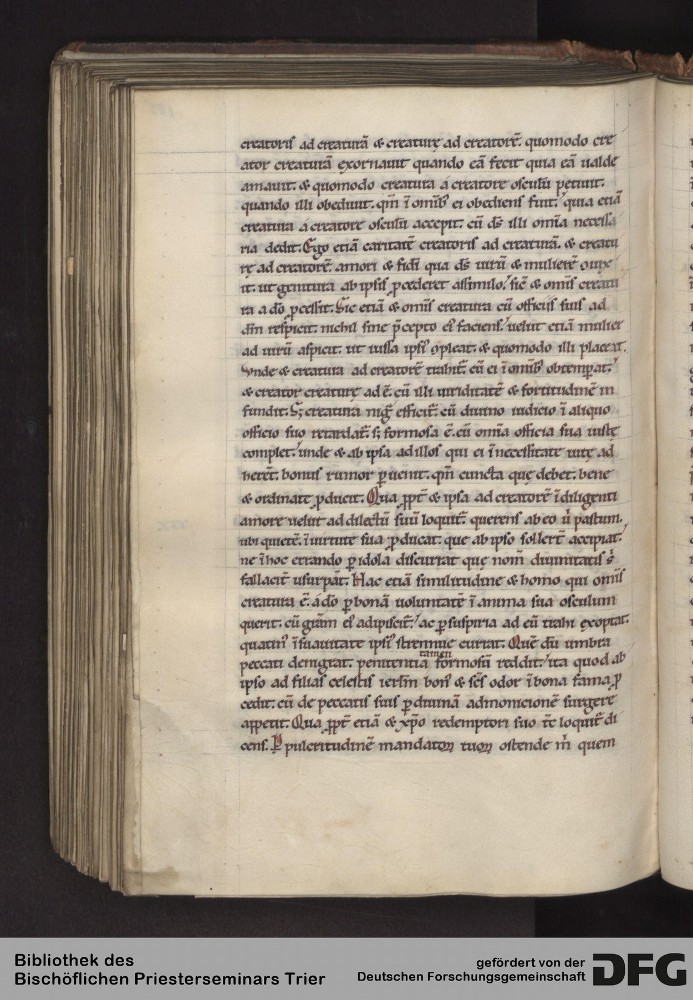 creatoris ad creaturā & creaturę ad creatorē. quomodo cre
ator creaturā exornauit quando eā fecit quia eā ualde
amauit. & quomodo creatura a creatore osculū petiuit.
quando illi obediuit. qm̄ ī omīb; ei obediens fuit. quia etiā
creatura a creatore osculū accepit. cū ds̄ illi omīa necessa
ria dedit. Ego etiā caritatē creatoris ad creaturā. & creatu
rę ad creatorē. amori & fidei qua ds̄ uirū & mulierē
it. ut genitura ab ipsis pcederet assimilo. sic̄ & omīs creatu
ra a dō pcessit. Sic etiā & omīs creatura cū officiis suis ad
dm̄ respicit. nichil sine p̄cepto ei faciens. uelut etiā mulier
ad uirū aspicit. ut iussa ipsi ꝯpleat. & quomodo illi placeat.
Vnde & creatura ad creatorē trahit̄. cū ei ī omīb; obtemperat.
& creator creaturę adē. cū illi uiriditatē & fortitudinē in
fundit. S; creatura nigra efficit̄. cū diuino iudicio ī aliquo
officio suo retardat̄. s; formosa ē. cū omīa officia sua iuste
complet. unde & ab ipsa ad illos qui ei ī necessitate uitę ad
herēt. bonus rumor puenit. qm̄ cuncta quę debet. bene
& ordinate pducit. Qua ppt̄ & ipsa ad creatorē ī diligenti
amore uelut ad dilectū suū loquit̄. querens ab eo ū pastum.
ubi quietē. ī uirtute sua pducat. que ab ipso sollert̄ accipiat.
ne ī hoc errando p idola discurrat quę nom̄ diuinitatis s̄
fallacit̄ usurpāt. Hac etiā similitudine & homo qui omīs
creatura ē. a dō p bonā uoluntatē ī anima sua osculum
querit. cū gr̄am ei adipiscit̄. ac p suspiria ad eū trahi exoptat.
quatin̄ ī suauitate ipsi strennue currat. Quē dū umbra
peccati denigrat. penitentia tamen formosū reddit. ita quod ab
ipso ad filias celestis ierlm̄ bon̄ & scs̄ odor ī bona fama p
cedit. cū de peccatis suis p diuinā admonicionē surgere
appetit. Qua ppt̄ etiā & xp̄o redemptori suo tc̄ loquit̄ di
cens. P pulcritudinē mandatoꝝ tuoꝝ ostende m̄ quem
Bibliothek des
Bischöflichen Priesterseminars Trier
gefördert von der
Deutschen Forschungsgemeinschaft
DFG